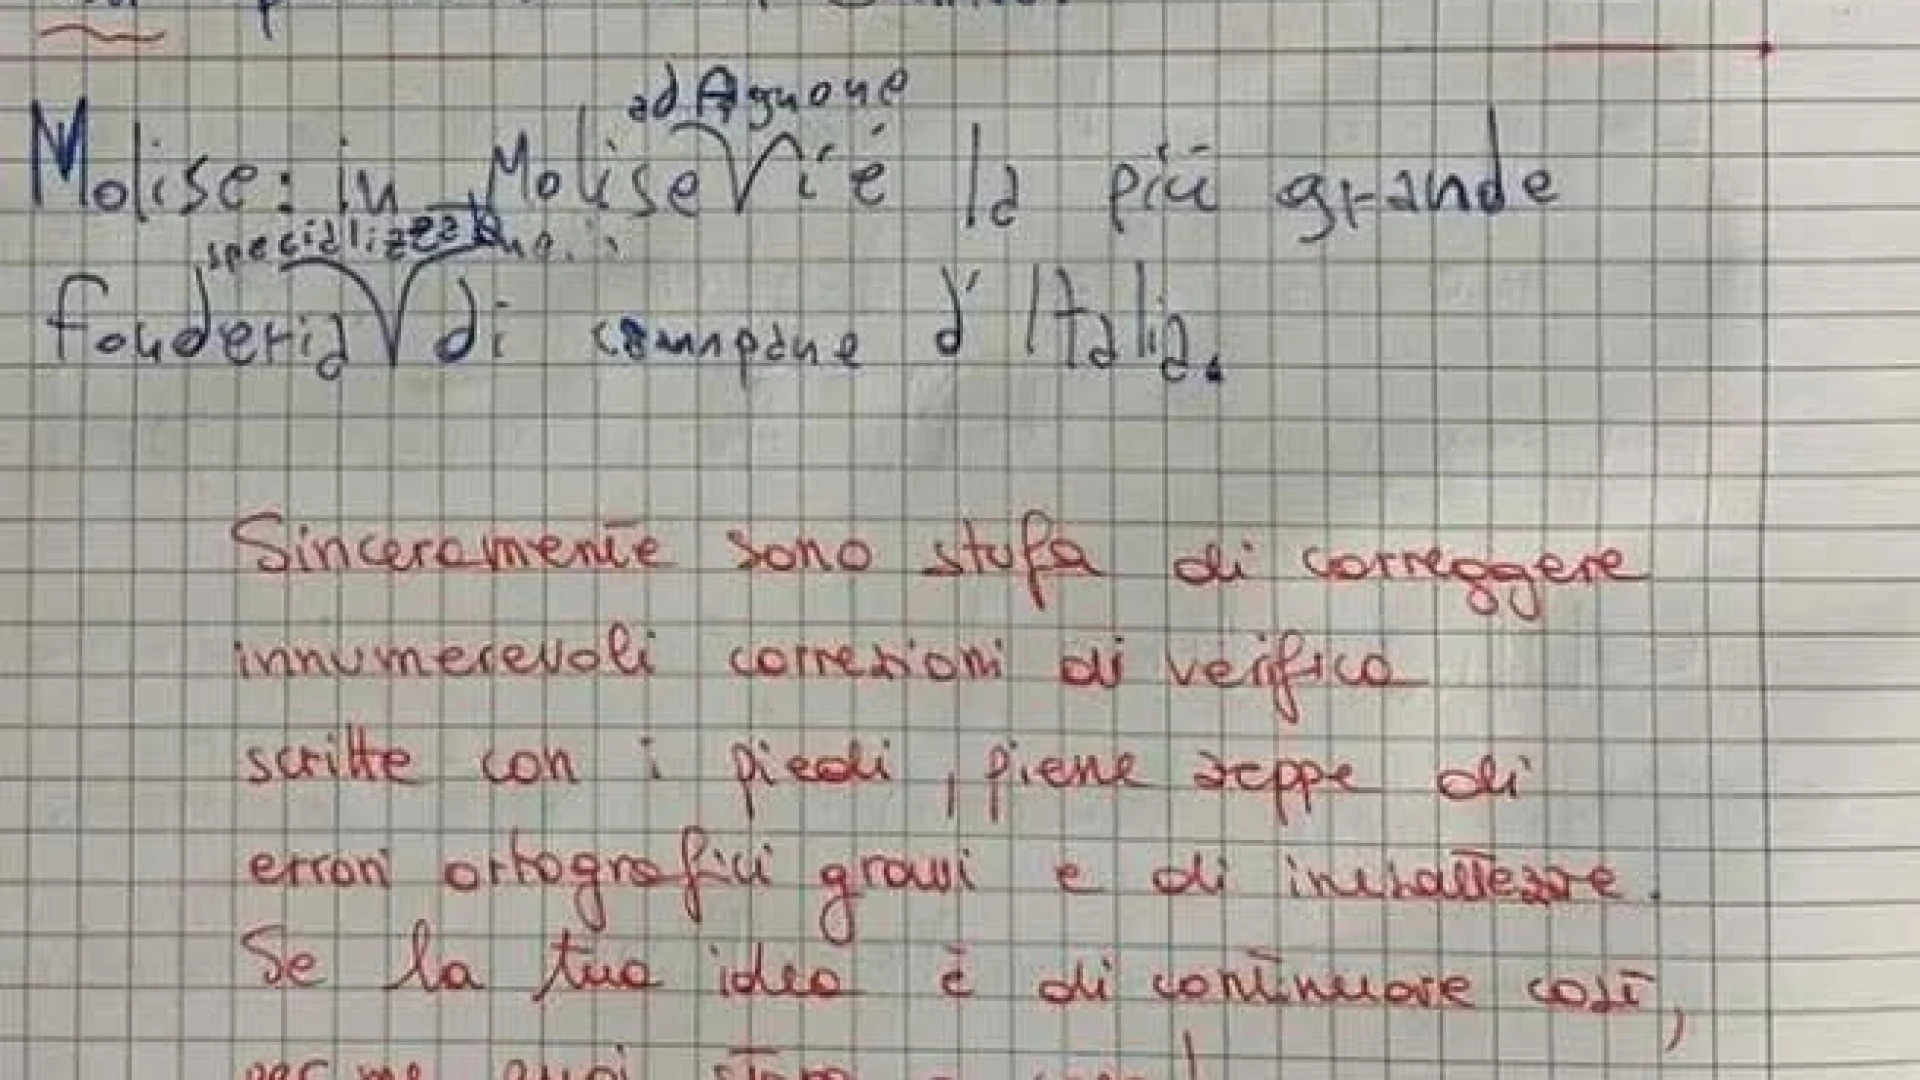 ad Agnone
Molise: in Molise Vi é la più grande
fonderia di campane d'Italia.
Sinceramente sono stufa di correggere
innumerevoli correzioni di verifica
scritte con i piedi, piene zeppe di
errori ortografici gravi e di inesattezze.
Se la tua idea è di continuare così,
per me puoi stare a casa!